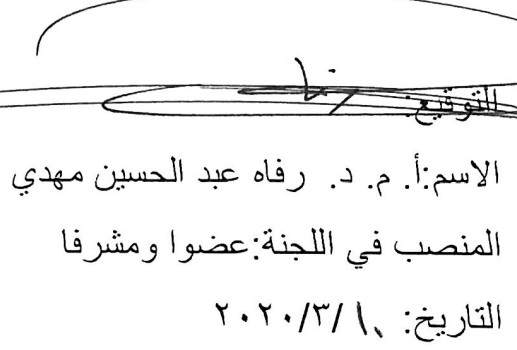 التوقيع:
الاسم:أ. م. د. رفاه عبد الحسين مهدي
المنصب في اللجنة:عضوا ومشرفا
التاريخ: ١٠/٣/٢٠٢٠